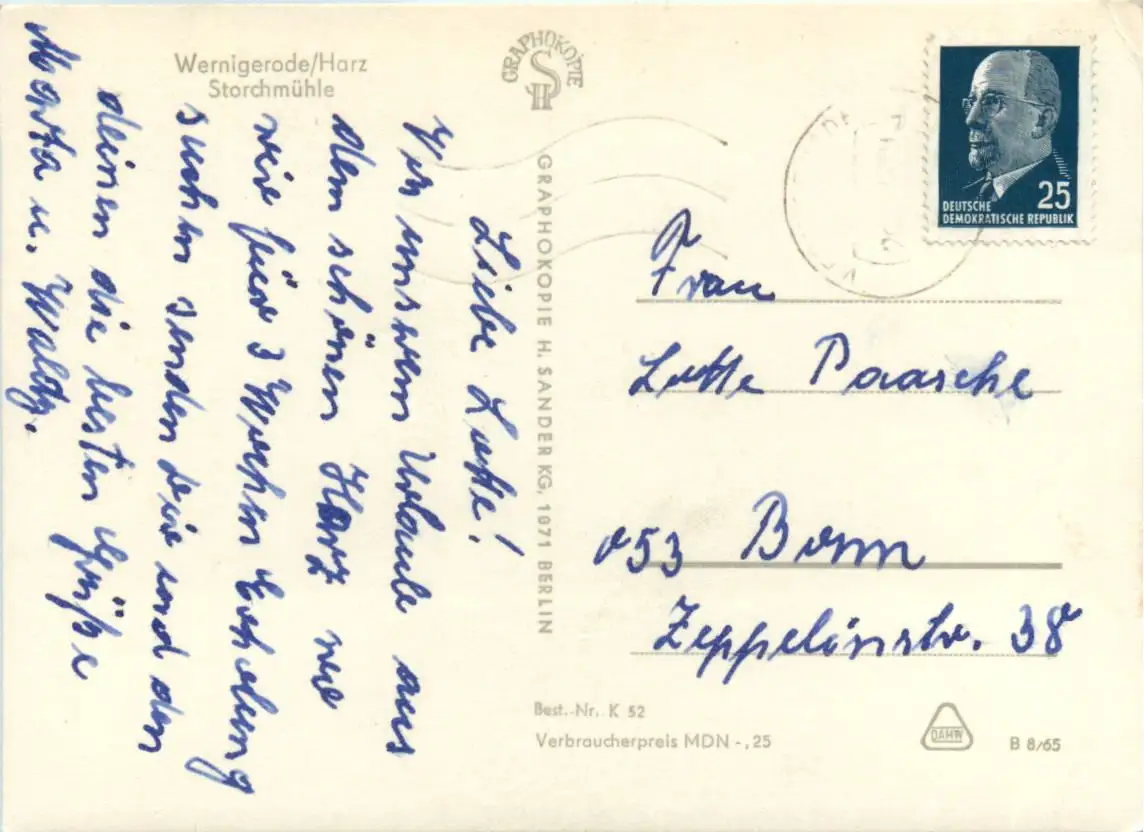 Wernigerode/Harz
Storchmühle
GRAPHOKOPIE
SH
GRAPHOKOPIE H. SANDER KG, 1071 BERLIN
DEUTSCHE
DEMOKRATISCHE REPUBLIK
25
Liebe Lotte!
In unserem Urlaub aus
dem schönen Harz wo
wir für 3 Wochen Erholung
suchen senden Dir und den
deinen die besten Grüße
Marta u. Waldy.
Frau
Lotte Paasche
053 Bonn
Zeppelinstr. 38
Best.-Nr. K 52
Verbraucherpreis MDN -,25
DAHW
B 8/65